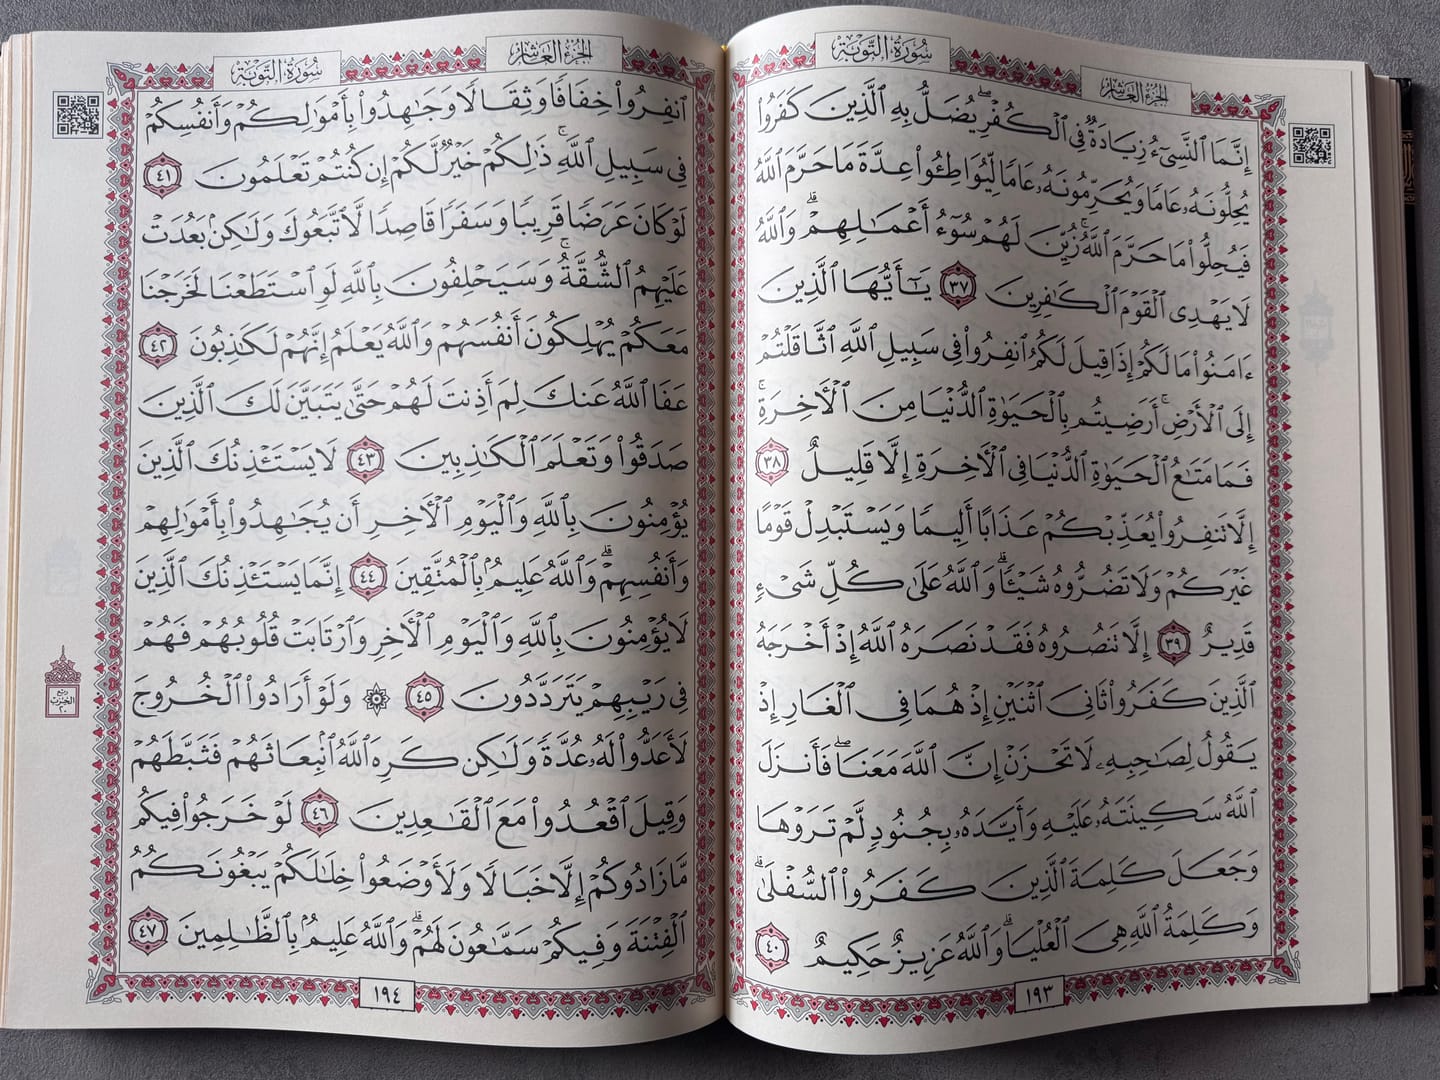 سُورَةُ التَّوْبَةِ
الجُزْءُ العَاشِرُ
إِنَّمَا ٱلنَّسِىٓءُ زِيَادَةٌ فِى ٱلْكُفْرِ ۖ يُضَلُّ بِهِ ٱلَّذِينَ كَفَرُوا۟
يُحِلُّونَهُۥ عَامًا وَيُحَرِّمُونَهُۥ عَامًا لِّيُوَاطِـُٔوا۟ عِدَّةَ مَا حَرَّمَ ٱللَّهُ
فَيُحِلُّوا۟ مَا حَرَّمَ ٱللَّهُ ۚ زُيِّنَ لَهُمْ سُوٓءُ أَعْمَـٰلِهِمْ ۗ وَٱللَّهُ
لَا يَهْدِى ٱلْقَوْمَ ٱلْكَـٰفِرِينَ ٣٧ يَـٰٓأَيُّهَا ٱلَّذِينَ
ءَامَنُوا۟ مَا لَكُمْ إِذَا قِيلَ لَكُمُ ٱنفِرُوا۟ فِى سَبِيلِ ٱللَّهِ ٱثَّاقَلْتُمْ
إِلَى ٱلْأَرْضِ ۚ أَرَضِيتُم بِٱلْحَيَوٰةِ ٱلدُّنْيَا مِنَ ٱلْـَٔاخِرَةِ ۚ
فَمَا مَتَـٰعُ ٱلْحَيَوٰةِ ٱلدُّنْيَا فِى ٱلْـَٔاخِرَةِ إِلَّا قَلِيلٌ ٣٨
إِلَّا تَنفِرُوا۟ يُعَذِّبْكُمْ عَذَابًا أَلِيمًا وَيَسْتَبْدِلْ قَوْمًا
غَيْرَكُمْ وَلَا تَضُرُّوهُ شَيْـًٔا ۗ وَٱللَّهُ عَلَىٰ كُلِّ شَىْءٍ
قَدِيرٌ ٣٩ إِلَّا تَنصُرُوهُ فَقَدْ نَصَرَهُ ٱللَّهُ إِذْ أَخْرَجَهُ
ٱلَّذِينَ كَفَرُوا۟ ثَانِىَ ٱثْنَيْنِ إِذْ هُمَا فِى ٱلْغَارِ إِذْ
يَقُولُ لِصَـٰحِبِهِۦ لَا تَحْزَنْ إِنَّ ٱللَّهَ مَعَنَا ۖ فَأَنزَلَ
ٱللَّهُ سَكِينَتَهُۥ عَلَيْهِ وَأَيَّدَهُۥ بِجُنُودٍ لَّمْ تَرَوْهَا
وَجَعَلَ كَلِمَةَ ٱلَّذِينَ كَفَرُوا۟ ٱلسُّفْلَىٰ ۗ
وَكَلِمَةُ ٱللَّهِ هِىَ ٱلْعُلْيَا ۗ وَٱللَّهُ عَزِيزٌ حَكِيمٌ ٤٠
١٩٣
الجُزْءُ العَاشِرُ
سُورَةُ التَّوْبَةِ
ٱنفِرُوا۟ خِفَافًا وَثِقَالًا وَجَـٰهِدُوا۟ بِأَمْوَٰلِكُمْ وَأَنفُسِكُمْ
فِى سَبِيلِ ٱللَّهِ ۚ ذَٰلِكُمْ خَيْرٌ لَّكُمْ إِن كُنتُمْ تَعْلَمُونَ ٤١
لَوْ كَانَ عَرَضًا قَرِيبًا وَسَفَرًا قَاصِدًا لَّٱتَّبَعُوكَ وَلَـٰكِنۢ بَعُدَتْ
عَلَيْهِمُ ٱلشُّقَّةُ ۚ وَسَيَحْلِفُونَ بِٱللَّهِ لَوِ ٱسْتَطَعْنَا لَخَرَجْنَا
مَعَكُمْ يُهْلِكُونَ أَنفُسَهُمْ وَٱللَّهُ يَعْلَمُ إِنَّهُمْ لَكَـٰذِبُونَ ٤٢
عَفَا ٱللَّهُ عَنكَ لِمَ أَذِنتَ لَهُمْ حَتَّىٰ يَتَبَيَّنَ لَكَ ٱلَّذِينَ
صَدَقُوا۟ وَتَعْلَمَ ٱلْكَـٰذِبِينَ ٤٣ لَا يَسْتَـْٔذِنُكَ ٱلَّذِينَ
يُؤْمِنُونَ بِٱللَّهِ وَٱلْيَوْمِ ٱلْـَٔاخِرِ أَن يُجَـٰهِدُوا۟ بِأَمْوَٰلِهِمْ
وَأَنفُسِهِمْ ۗ وَٱللَّهُ عَلِيمٌۢ بِٱلْمُتَّقِينَ ٤٤ إِنَّمَا يَسْتَـْٔذِنُكَ ٱلَّذِينَ
لَا يُؤْمِنُونَ بِٱللَّهِ وَٱلْيَوْمِ ٱلْـَٔاخِرِ وَٱرْتَابَتْ قُلُوبُهُمْ فَهُمْ
فِى رَيْبِهِمْ يَتَرَدَّدُونَ ٤٥ ۞ وَلَوْ أَرَادُوا۟ ٱلْخُرُوجَ
لَأَعَدُّوا۟ لَهُۥ عُدَّةً وَلَـٰكِن كَرِهَ ٱللَّهُ ٱنۢبِعَاثَهُمْ فَثَبَّطَهُمْ
وَقِيلَ ٱقْعُدُوا۟ مَعَ ٱلْقَـٰعِدِينَ ٤٦ لَوْ خَرَجُوا۟ فِيكُم
مَّا زَادُوكُمْ إِلَّا خَبَالًا وَلَأَوْضَعُوا۟ خِلَـٰلَكُمْ يَبْغُونَكُمُ
ٱلْفِتْنَةَ وَفِيكُمْ سَمَّـٰعُونَ لَهُمْ ۗ وَٱللَّهُ عَلِيمٌۢ بِٱلظَّـٰلِمِينَ ٤٧
ربع
الحزب
٢٠
١٩٤